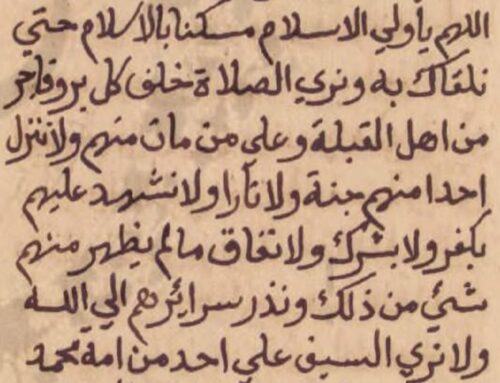 اللهم يا ولي الاسلام مسكنا بالاسلام حتي
نلقاك به ونري الصلاة خلف كل بر وفاجر
من اهل القبلة وعلي من مات منهم ولا ننزل
احدا منهم جنة ولا نارا ولا نشهد عليهم
بكفر ولا بشرك ولا نفاق ما لم يظهر منهم
شيئ من ذلك ونذر سرائرهم الي الله
ولا نري السيف علي احد من امة محمد